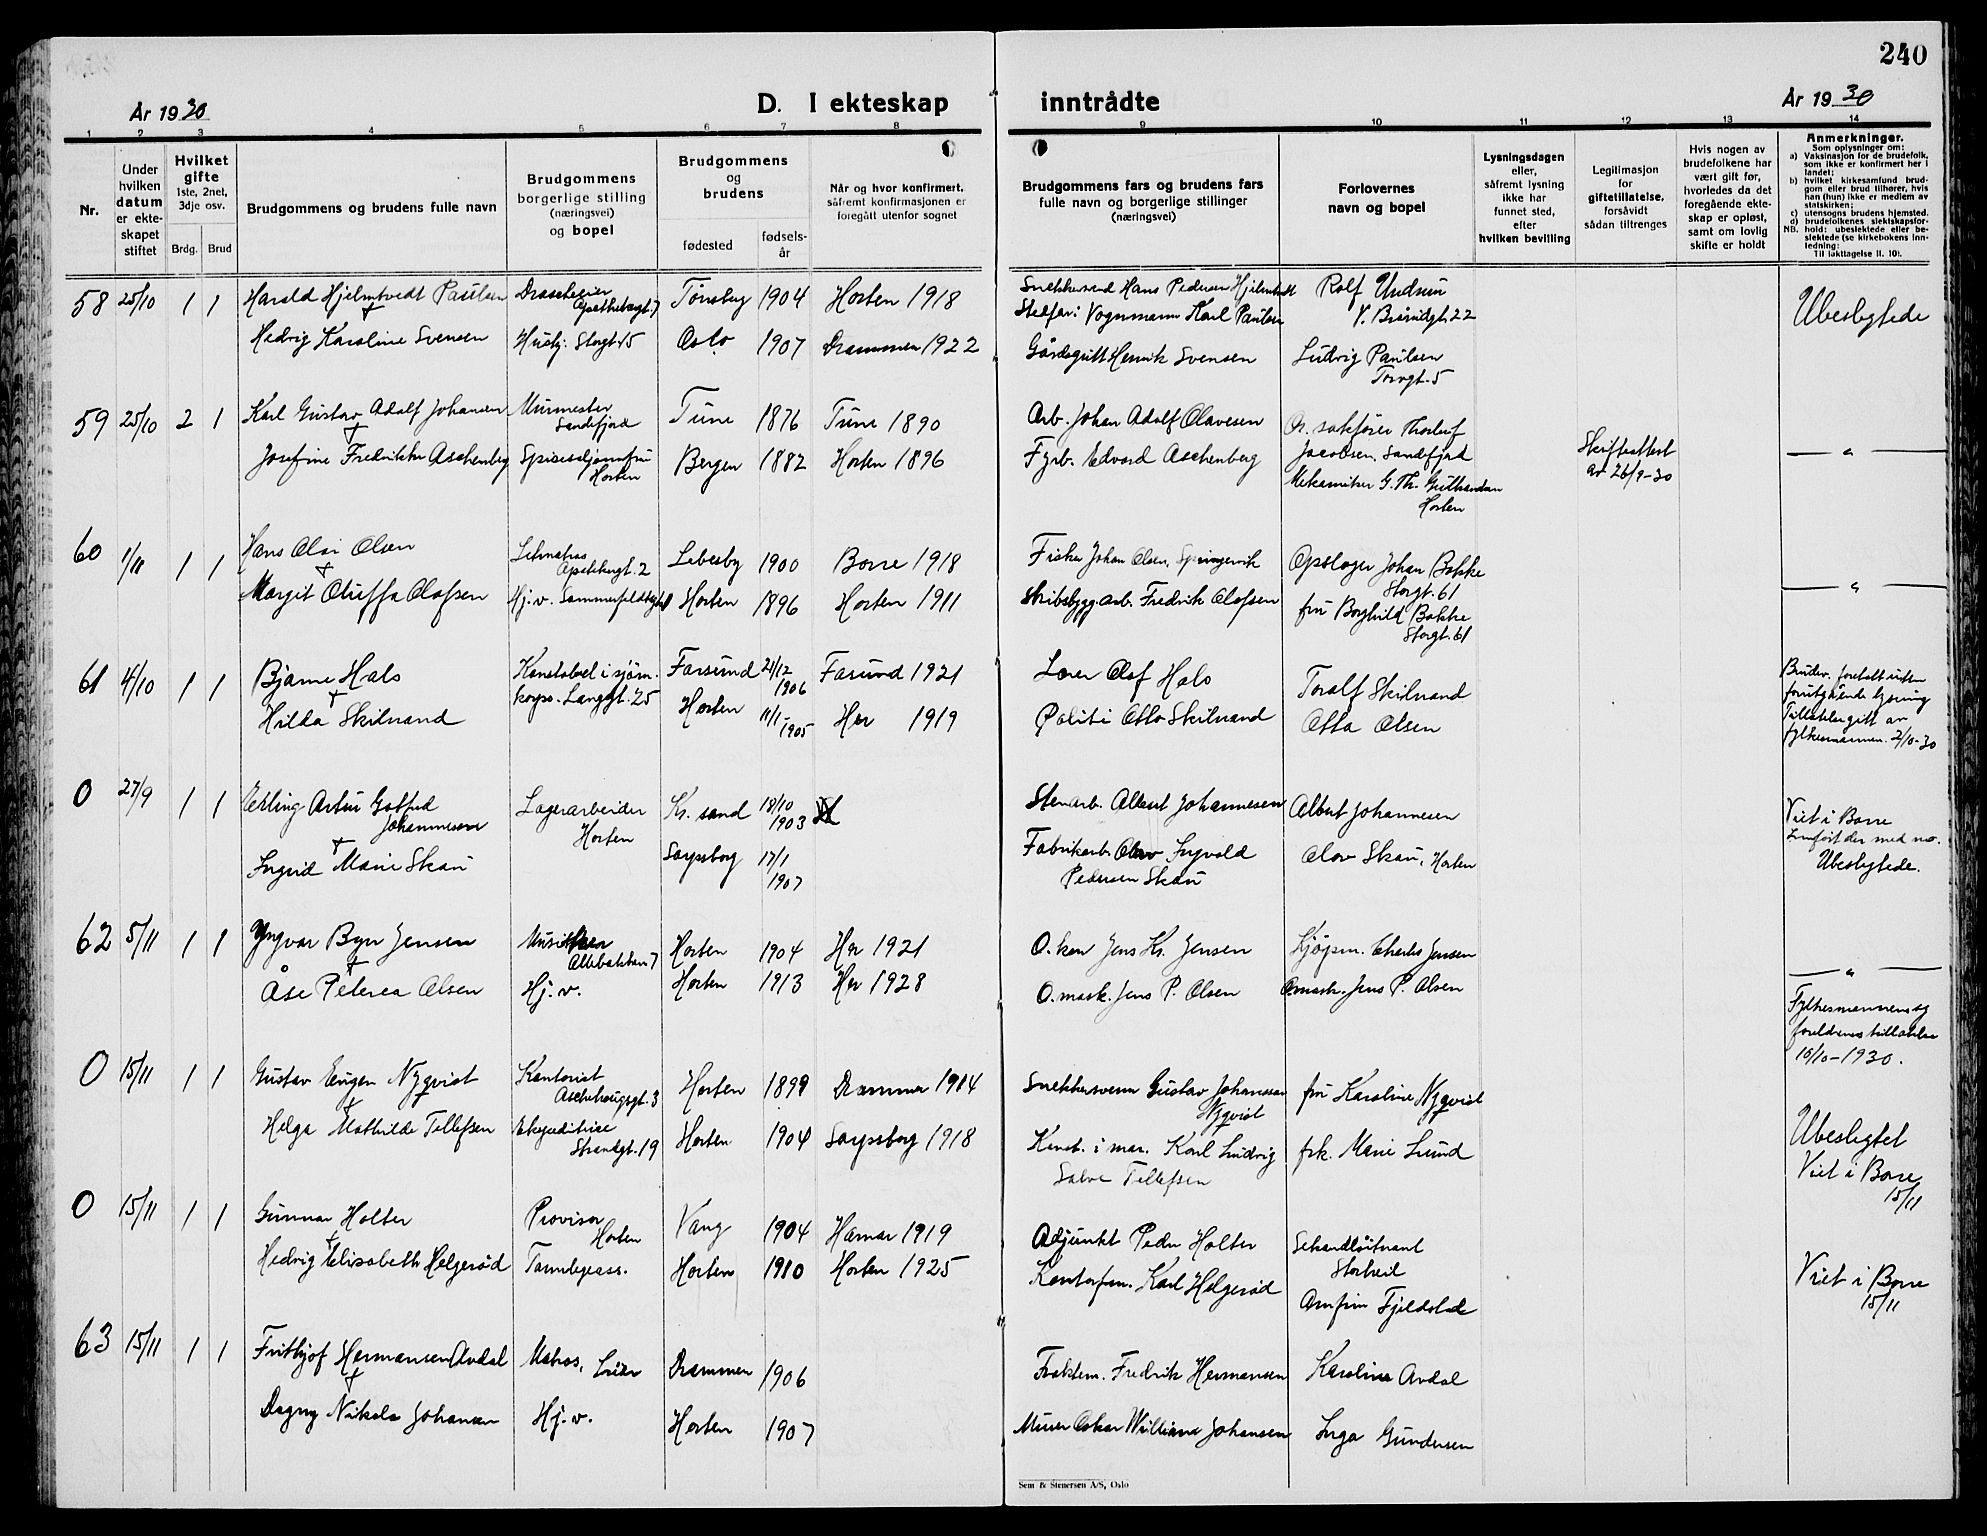 240
År 1930
D. I ekteskap inntrådte
År 1930
1 2 3 4 5 6 7 8 9 10 11 12 13 14
Nr.
Under hvilken datum er ekteskapet stiftet
Hvilket gifte
1ste, 2net, 3dje osv.
Brdg. Brud
Brudgommens og brudens fulle navn
Brudgommens borgerlige stilling (næringsvei) og bopel
Brudgommens og brudens
fødested
fødselsår
Når og hvor konfirmert, såfremt konfirmasjonen er foregått utenfor sognet
Brudgommens fars og brudens fars fulle navn og borgerlige stillinger (næringsvei)
Forlovernes navn og bopel
Lysningsdagen eller, såfremt lysning ikke har funnet sted, efter hvilken bevilling
Legitimasjon for giftetillatelse, forsåvidt sådan tiltrenges
Hvis nogen av brudefolkene har vært gift før, hvorledes da det foregående ekteskap er opløst, samt om lovlig skifte er holdt
Anmerkninger.
Som oplysninger om:
a) Vaksinasjon for de brudefolk, som ikke er konfirmert her i landet;
b) hvilket kirkesamfund brudgom eller brud tilhører, hvis han (hun) ikke er medlem av statskirken;
c) utensogns brudens hjemsted.
d) brudefolkenes slektskapsforhold: ubeslektede eller beslektede (se kirkebokens innledning:
NB. Til iakttagelse II. 10).
58 25/10 1 1 Harald Hjelmtvedt Paulsen Tønsberg 1904 Horten 1918 Hans Pedersen Hjelmtvedt Rolf
Stelfar: Vognmann Karl Paulsen 22
Hedvig Karoline Svensen Storgt. 15 Oslo 1907 Drammen 1922 Henrik Svensen Ludvig Paulsen
Torvgt. 5
Ubeslegtede
59 25/10 2 1 Karl Gustav Adolf Johansen Murmester Sandefjord Tune 1876 Tune 1890 Arb. Johan Adolf Olavesen O. sakfører Thorleif
Josefine Fredrikke Aschenberg Horten Bergen 1882 Horten 1896 Fyrb. Edvard Aschenberg Jacobsen, Sandefjord
Mekaniker G. Th.
Horten
Skifteattest
av 26/9-30
— " —
60 1/11 1 1 Hans Olai Olsen Apotekergt. 2 Lebesby 1900 Borre 1918 Fisker Johan Olsen, Opslager Johan Bakke
Storgt. 61
Margit Oluffa Olafsen Hj. v. Horten 1896 Horten 1911 Skibsbygg. arb. Fredrik Olafsen fru Borghild Bakke
Storgt. 61
— " —
61 4/10 1 1 Bjarne Hals Konstabel i sjøm. Farsund 21/12 1906 Farsund 1921 Lærer Olaf Hals Toralf Skilnand
Hilda Skilnand korps. Langgt. 25 Horten 11/1-1905 Her 1919 Politi Otto Skilnand Otto Olsen
Brudev. foretatt uten
forutgående lysning
Tillatelse gitt av
fylkesmannen 2/10-30
0 27/9 1 1 Erling Artur Gotfred Johannesen Lagerarbeider Horten Kr. sand 18/10 1903 Stenarb. Albert Johannesen Albert Johannesen
Ingrid Marie Skau Sarpsborg 17/1 1907 Fabrikarb. Olav Ingvald Pedersen Skau Olov Skau, Horten
Viet i Borre
Innført der med no.
Ubeslegtede.
62 5/11 1 1 Yngvar Byn Jensen Horten 1904 Her 1921 O. kan Jens Kr. Jensen Kjøpm. Charles Jensen
Åse Peterea Olsen Hj. v. Horten 1913 Her 1928 O. mask. Jens P. Olsen O. mask. Jens P. Olsen
— " —
Fylkesmannens og
foreldrenes tillatelse
10/10-1930.
0 15/11 1 1 Gustav Eugen Nyqvist Kontorist Aschehougsgt. 3 Horten 1899 Drammen 1914 Snekkersvenn Gustav Johanssen Nyqvist fru Karoline Nyqvist
Helga Mathilde Tellefsen Ekspeditrise Strandgt. 19 Horten 1904 Sarpsborg 1918 Konst. i mar. Karl Ludvig Salve Tellefsen frk. Marie Lund
Ubeslegtet
Viet i Borre
15/11
0 15/11 1 1 Gunnar Holter Provisor Horten Vang 1904 Hamar 1919 Adjunkt Peder Holter Sekondløitnant
Hedvig Elisabeth Helgerød Tannlegeass. Horten 1910 Horten 1925 Kontorfm. Karl Helgerød Arnfinn
Viet i Borre
15/11
63 15/11 1 1 Frithjof Hermansen Avdal Matros, Lier Drammen 1906 Fredrik Hermansen Karoline Avdal
Dagny Nikola Johansen Hj. v. Horten 1907 Murer Oskar William Johansen Inga Gundersen
Sem & Stenersen A/S, Oslo